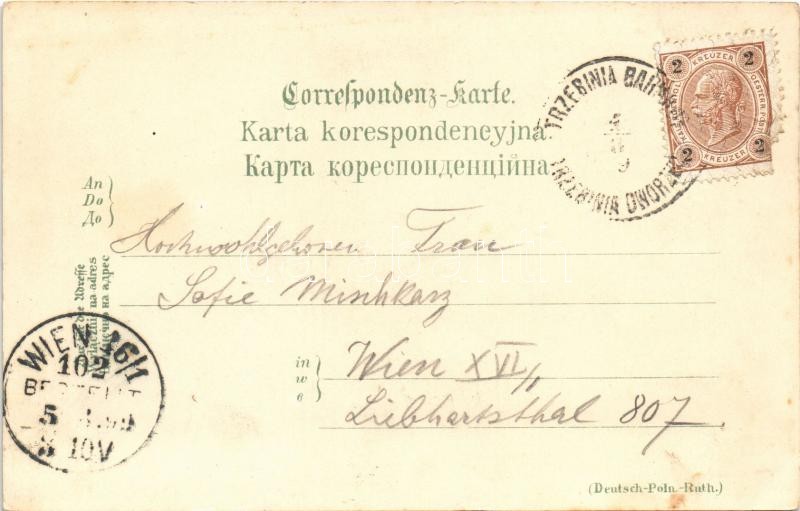 Correspondenz-Karte.
Karta korespondencyjna
Карта кореспонденційна
TRZEBINIA
TRZEBINIA DWORZEC
2 KREUZER 2
2 KREUZER 2
An
Do
До
Hochwohlgeboren Frau
Sofie Mischkarz
na adres
на адрес
in
w
в
Wien XVI,,
Liebhartsthal 807.
WIEN 16/1
102
BESTELLT
5
10V
(Deutsch-Poln.-Ruth.)